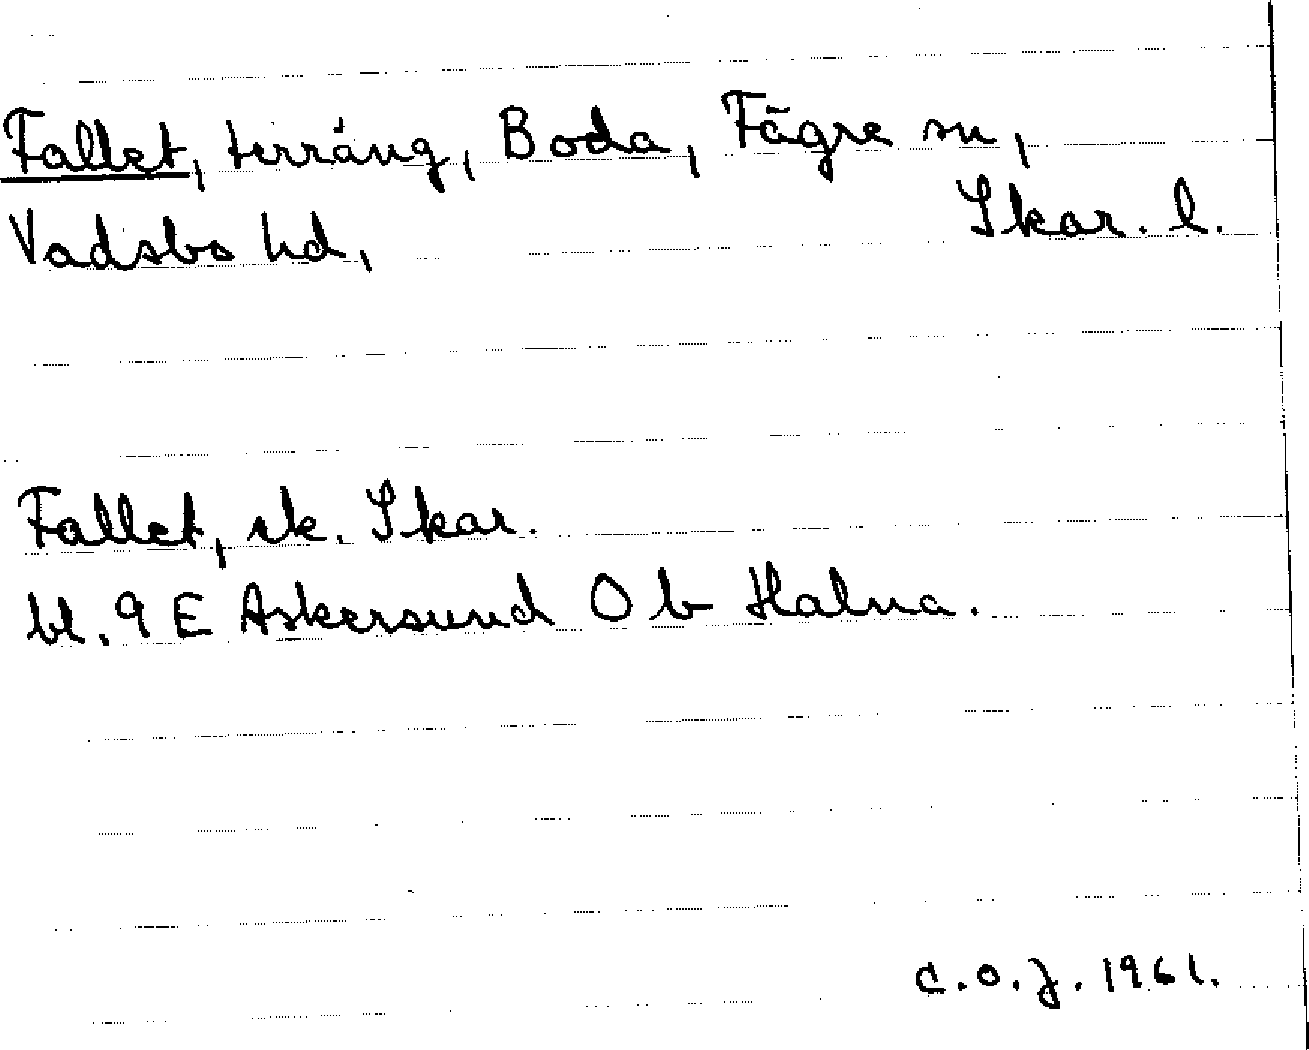 Fallet, terräng, Boda, Fägre sn,
Vadsbo hd, Skar. l.
Fallet, ek. Skar.
bl. 9 E Askersund O b Halna.
C.O.J. 1961.